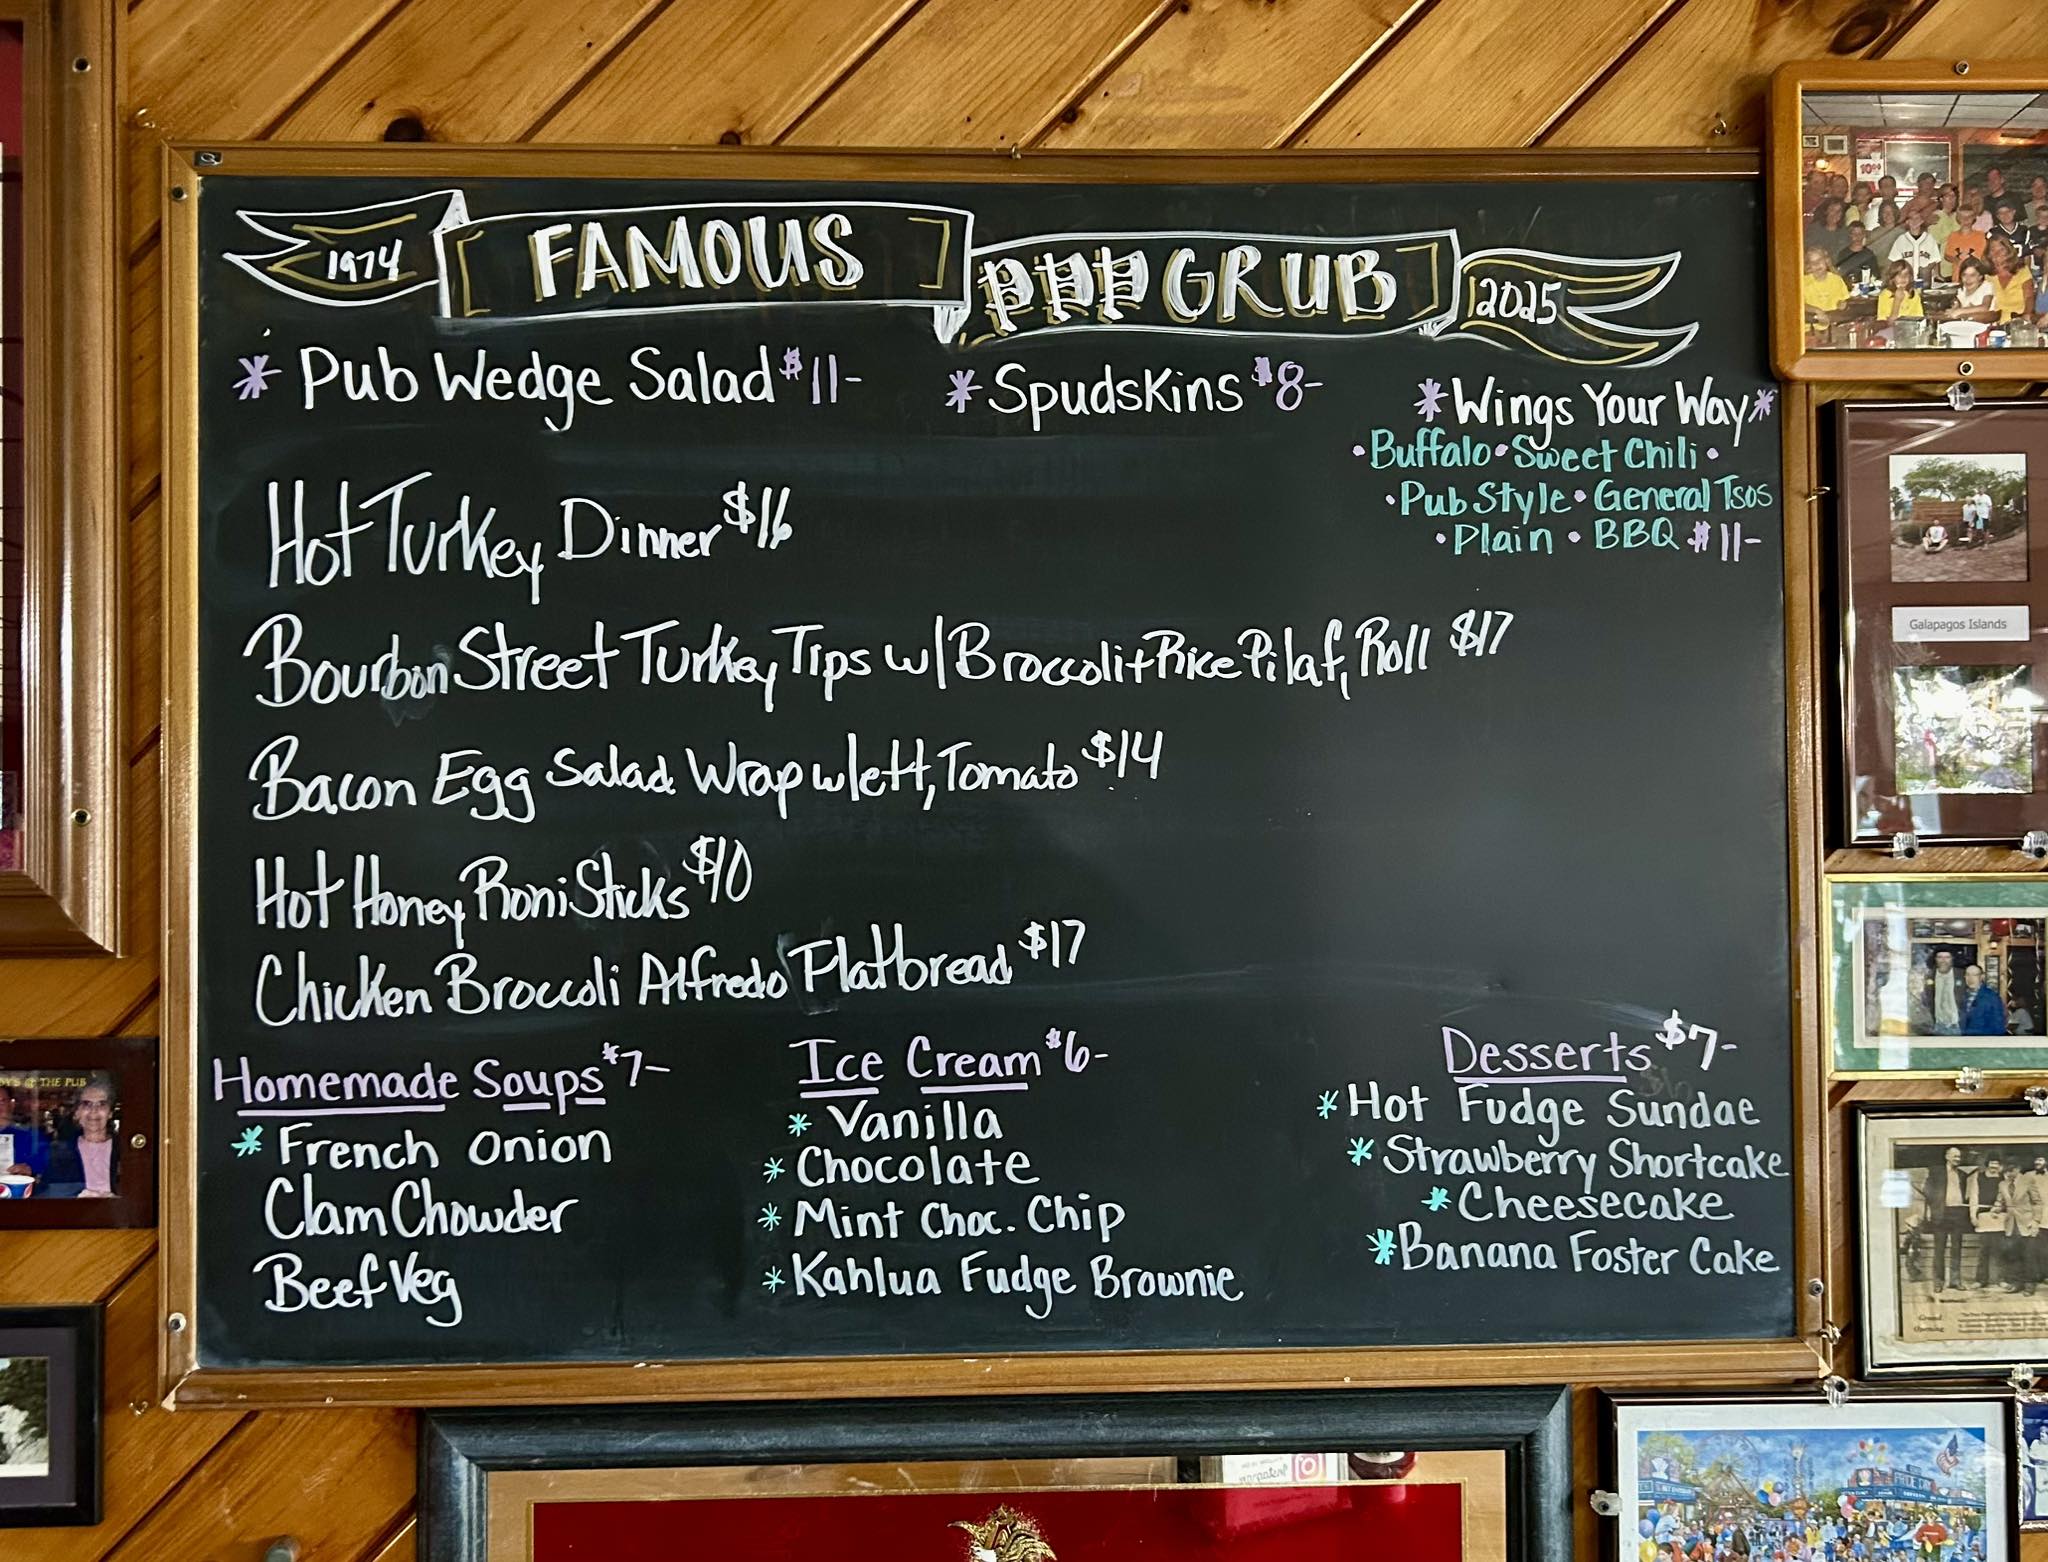 1974 FAMOUS PPP GRUB 2025
* Pub Wedge Salad $11-
* Spudskins $8-
* Wings Your Way *
• Buffalo • Sweet Chili •
• Pub Style • General Tsos
• Plain • BBQ $11-
Hot Turkey Dinner $16
Bourbon Street Turkey Tips w/ Broccoli + Rice Pilaf, Roll $17
Bacon Egg Salad Wrap w/ lett, Tomato $14
Hot Honey Roni Sticks $10
Chicken Broccoli Alfredo Flatbread $17
Homemade Soups $7-
* French Onion
Clam Chowder
Beef Veg
Ice Cream $6-
* Vanilla
* Chocolate
* Mint Choc. Chip
* Kahlua Fudge Brownie
Desserts $7-
* Hot Fudge Sundae
* Strawberry Shortcake
* Cheesecake
* Banana Foster Cake
Galapagos Islands
THE PUB
Instagram